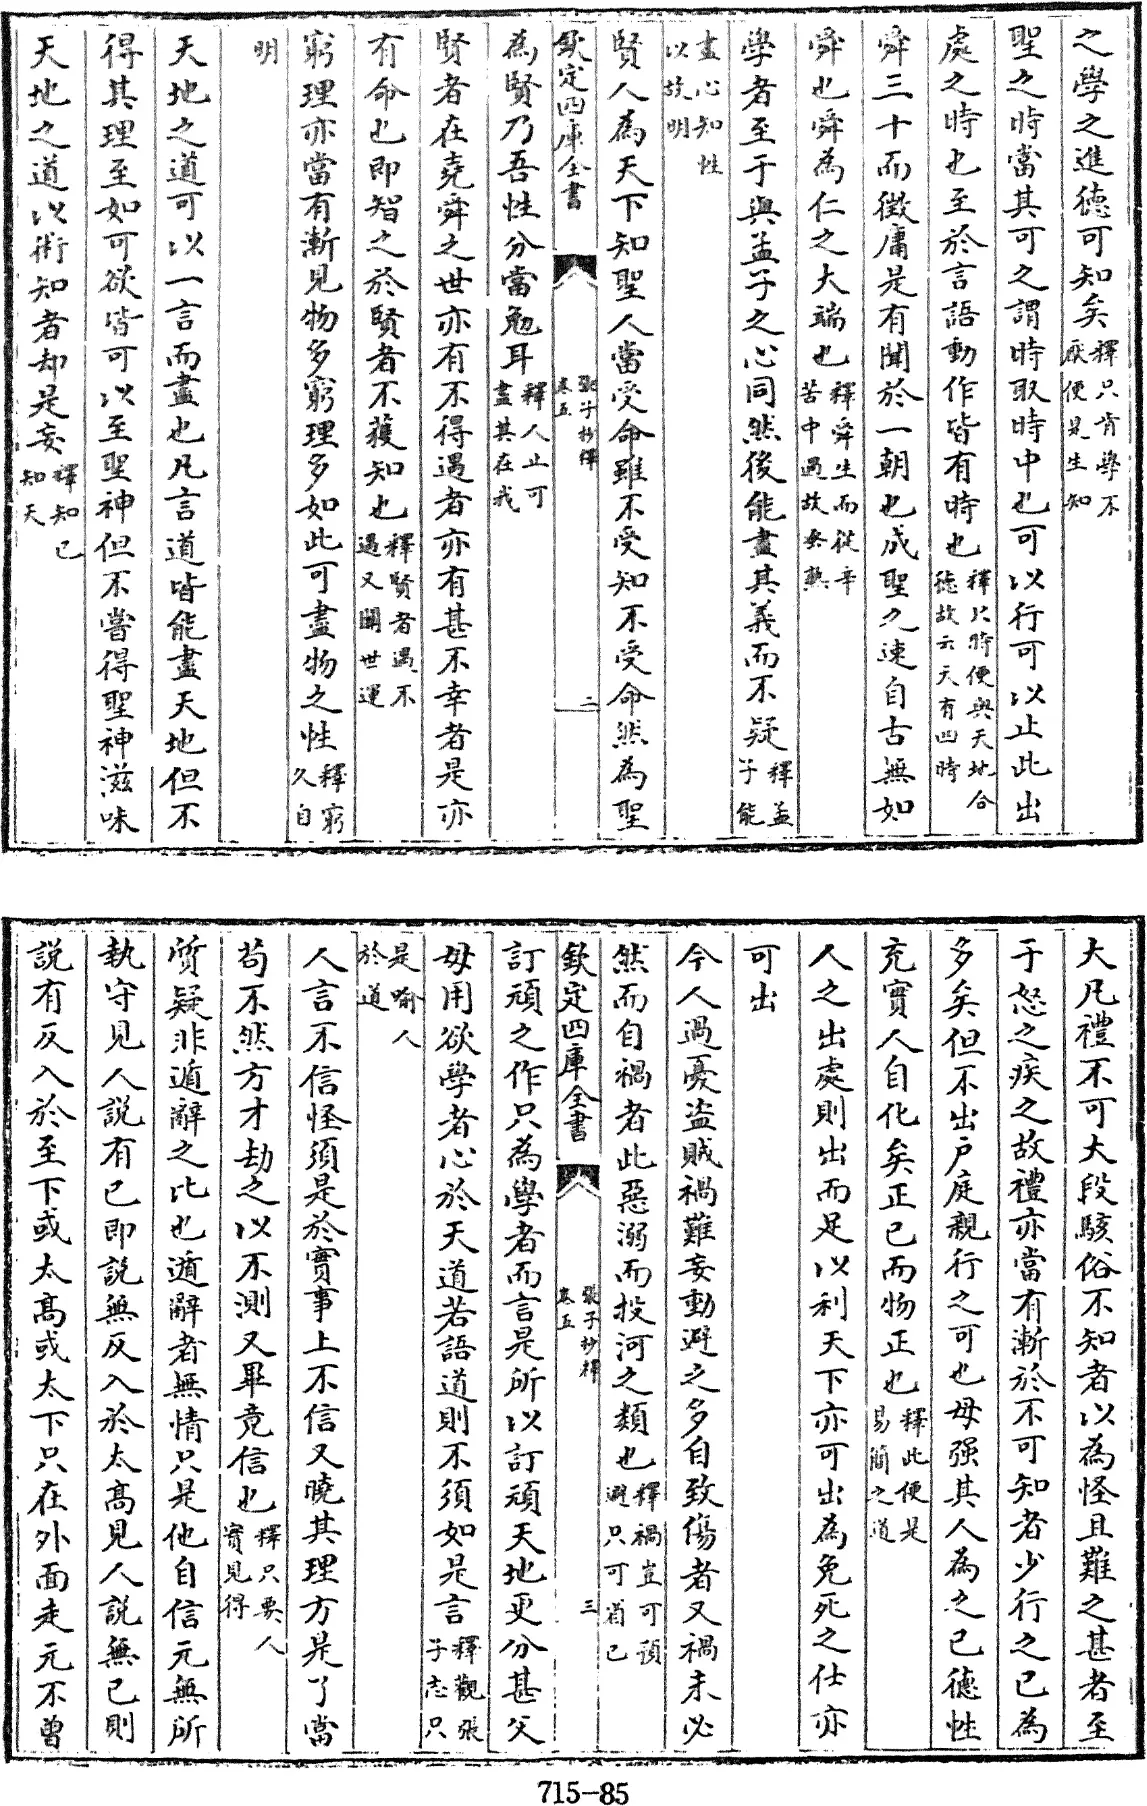 之學之進德可知矣釋只肯學不厭便是生知
聖之時當其可之謂時取時中也可以行可以止此出
處之時也至於言語動作皆有時也釋只時便與天地合德故云天有四時
舜三十而徵庸是有聞於一朝也成聖之速自古無如
舜也舜為仁之大端也釋舜生而從辛苦中過故仁熟
學者至于與孟子之心同然後能盡其義而不疑釋孟子能
盡心知性以故明
賢人為天下知聖人當受命雖不受知不受命然為聖
欽定四庫全書 張子抄釋卷五 二
為賢乃吾性分當勉耳釋人止可盡其在我
賢者在堯舜之世亦有不得遇者亦有甚不幸者是亦
有命也即智之於賢者不獲知也釋賢者遇不遇又關世運
窮理亦當有漸見物多窮理多如此可盡物之性釋窮久自
明
天地之道可以一言而盡也凡言道皆能盡天地但不
得其理至如可欲皆可以至聖神但不嘗得聖神滋味
天地之道以術知者却是妄釋知己知天
大凡禮不可大段駭俗不知者以為怪且難之甚者至
于怒之疾之故禮亦當有漸於不可知者少行之已為
多矣但不出戶庭親行之可也毋强其人為之已德性
充實人自化矣正已而物正也釋此便是易簡之道
人之出處則出而足以利天下亦可出為免死之仕亦
可出
今人過憂盜賊禍難妄動避之多自致傷者又禍未必
然而自禍者此惡溺而投河之類也釋禍豈可預避只可省己
欽定四庫全書 張子抄釋卷五 三
訂頑之作只為學者而言是所以訂頑天地更分甚父
母用欲學者心於天道若語道則不須如是言釋觀張子志只
是喻人於道
人言不信怪須是於實事上不信又曉其理方是了當
苟不然方才劫之以不測又畢竟信也釋只要人實見得
質疑非遁辭之比也遁辭者無情只是他自信元無所
執守見人説有已即説無反入於太高見人説無已則
説有反入於至下或太高或太下只在外面走元不曾
715-85